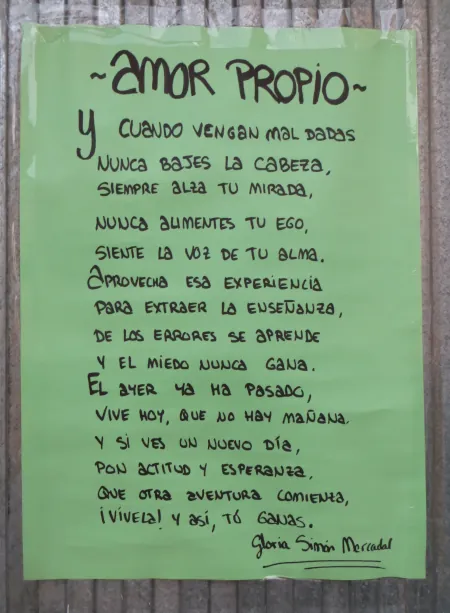 ~AMOR PROPIO~
Y CUANDO VENGAN MAL DADAS
NUNCA BAJES LA CABEZA,
SIEMPRE ALZA TU MIRADA,
NUNCA ALIMENTES TU EGO,
SIENTE LA VOZ DE TU ALMA.
APROVECHA ESA EXPERIENCIA
PARA EXTRAER LA ENSEÑANZA,
DE LOS ERRORES SE APRENDE
Y EL MIEDO NUNCA GANA.
EL AYER YA HA PASADO,
VIVE HOY, QUE NO HAY MAÑANA.
Y SI VES UN NUEVO DÍA,
PON ACTITUD Y ESPERANZA,
QUE OTRA AVENTURA COMIENZA,
¡VÍVELA! Y ASÍ, TÚ GANAS.
Gloria Simón Mercadal